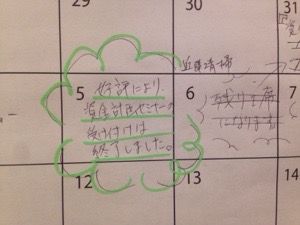 29
30
近隣清掃
5
好評により、
資金計画セミナーの
受け付けは
終了しました。
6
残り2席
になります
7
12
13